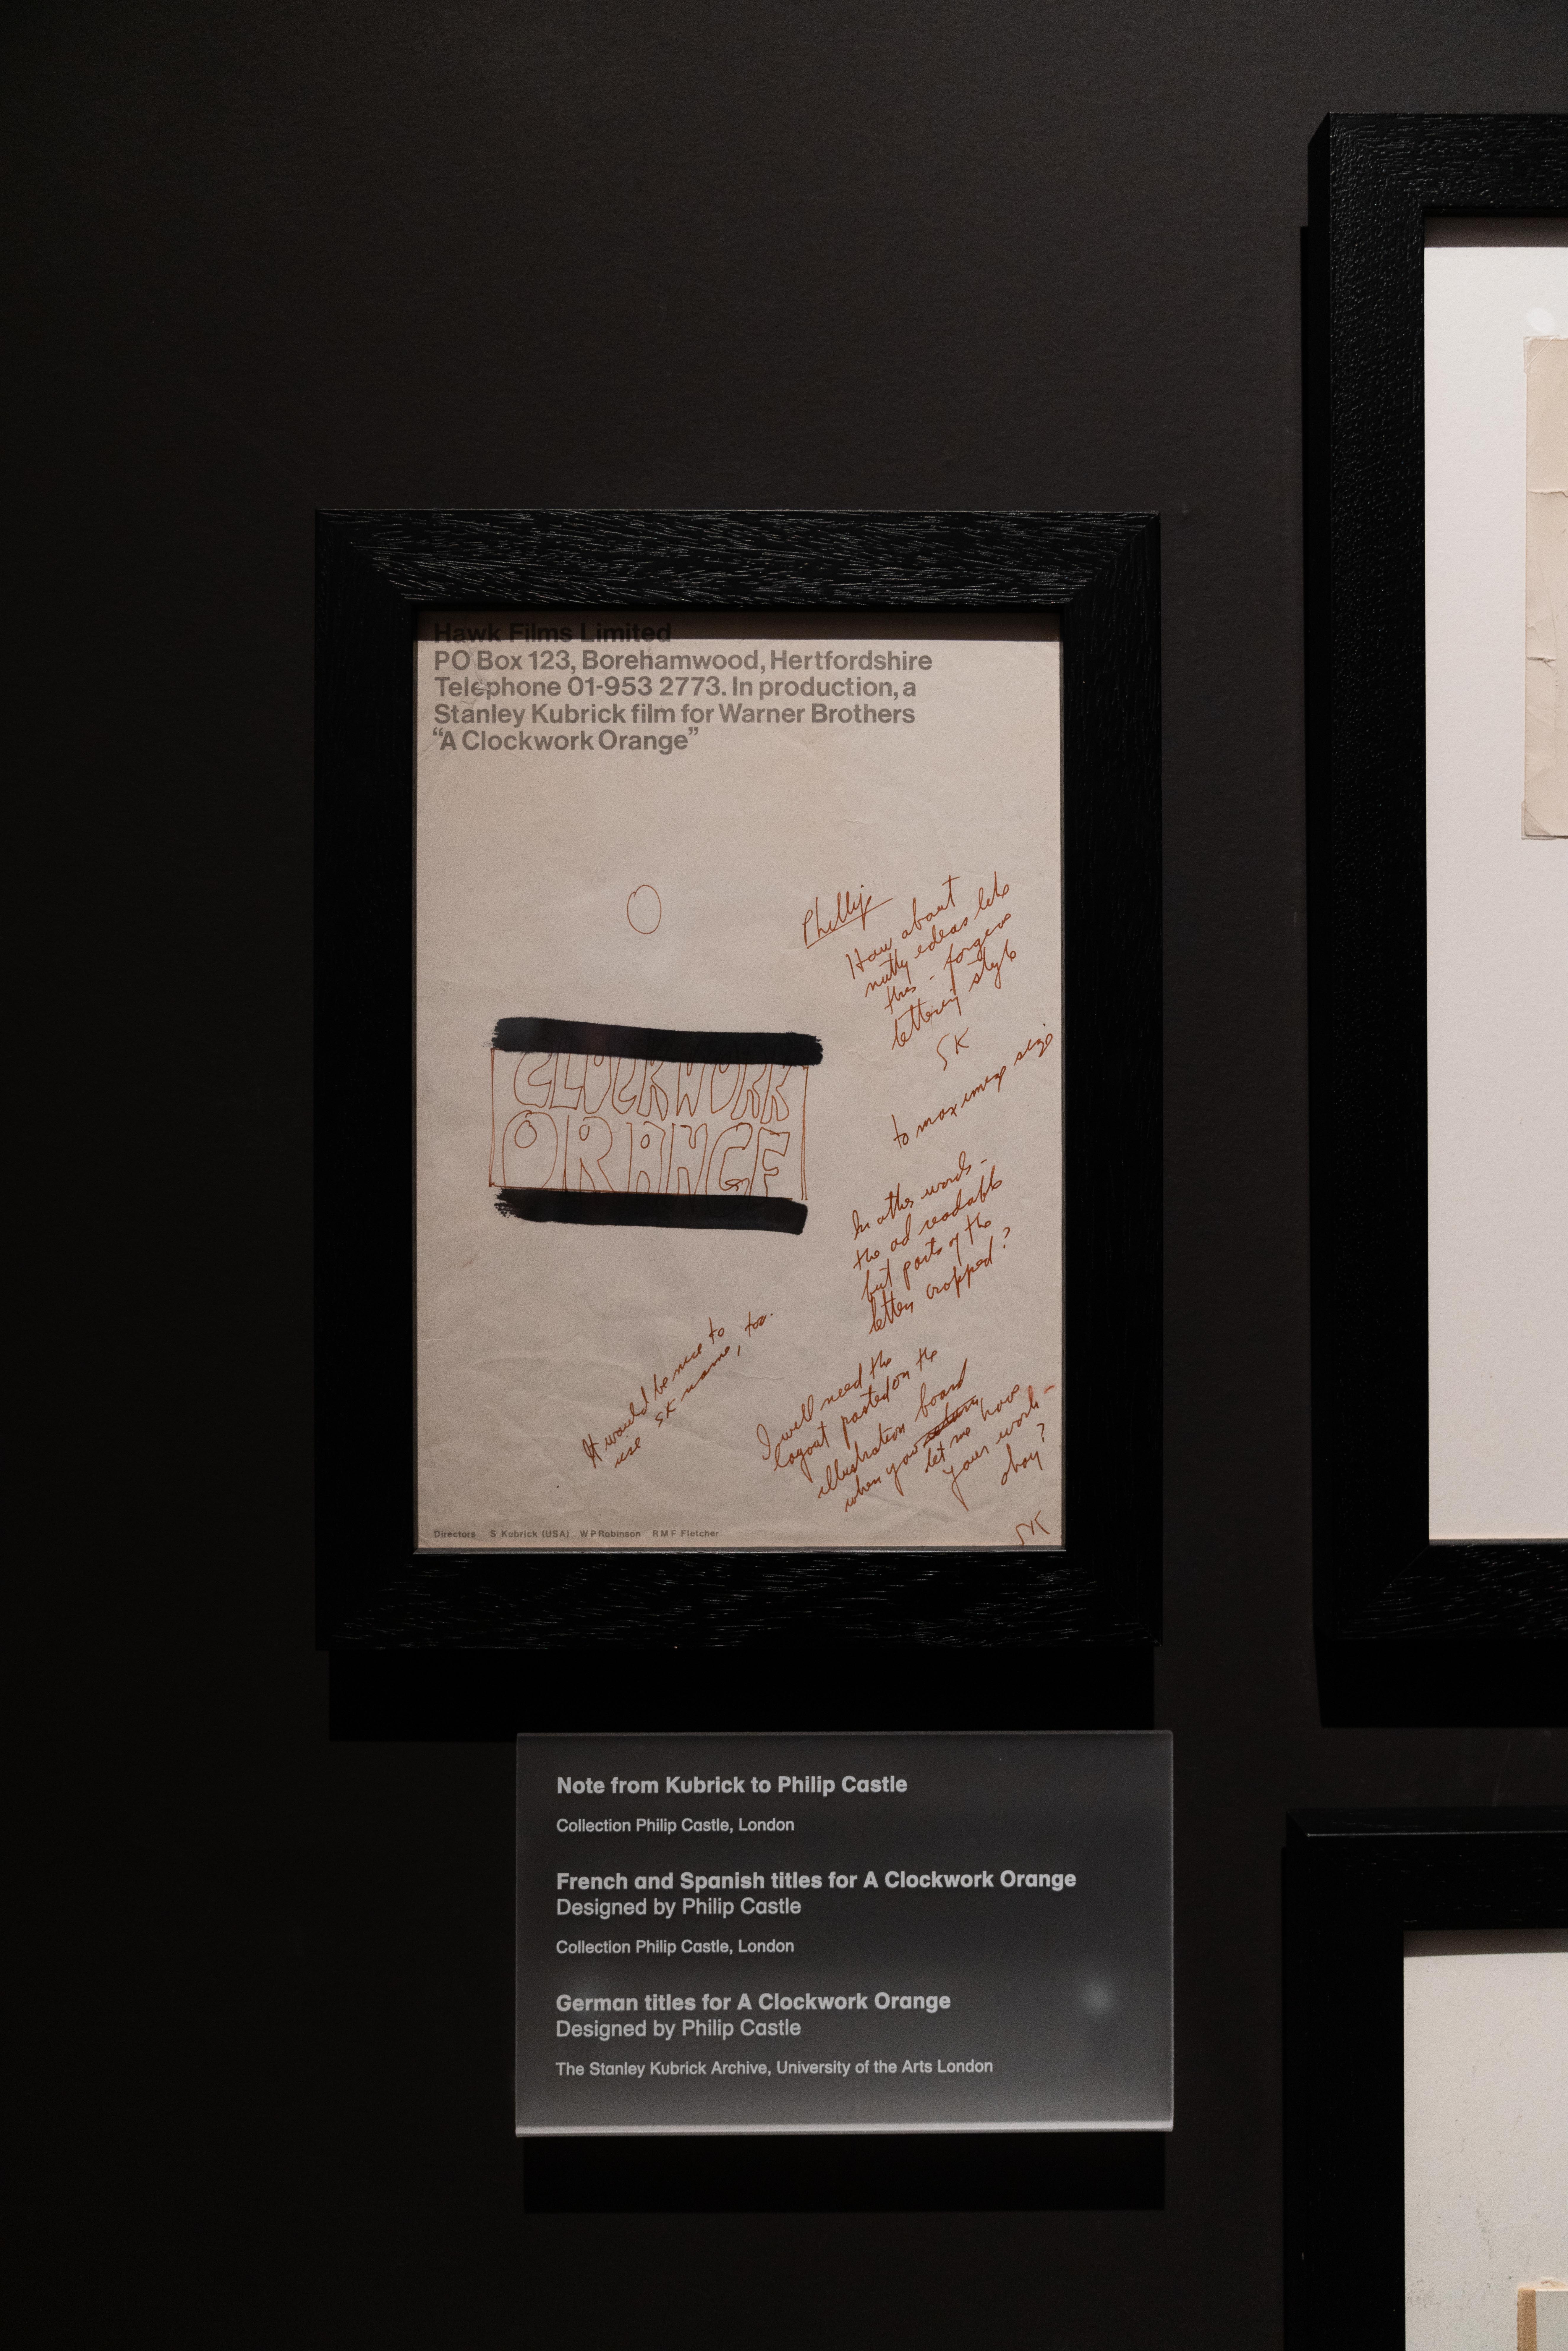 Hawk Films Limited
PO Box 123, Borehamwood, Hertfordshire
Telephone 01-953 2773. In production, a
Stanley Kubrick film for Warner Brothers
“A Clockwork Orange”
Phillip
How about
nutty ideas like
this - forgive
lettering style
SK
to maximize size
CLOCKWORK
ORANGE
In other words -
the ad readable
but parts of the
letters cropped?
It would be nice to
use SK name, too.
I will need the
layout pasted on the
illustration board
when you
let me have
your work -
okay?
SK
Directors S Kubrick (USA) W P Robinson R M F Fletcher
Note from Kubrick to Philip Castle
Collection Philip Castle, London
French and Spanish titles for A Clockwork Orange
Designed by Philip Castle
Collection Philip Castle, London
German titles for A Clockwork Orange
Designed by Philip Castle
The Stanley Kubrick Archive, University of the Arts London